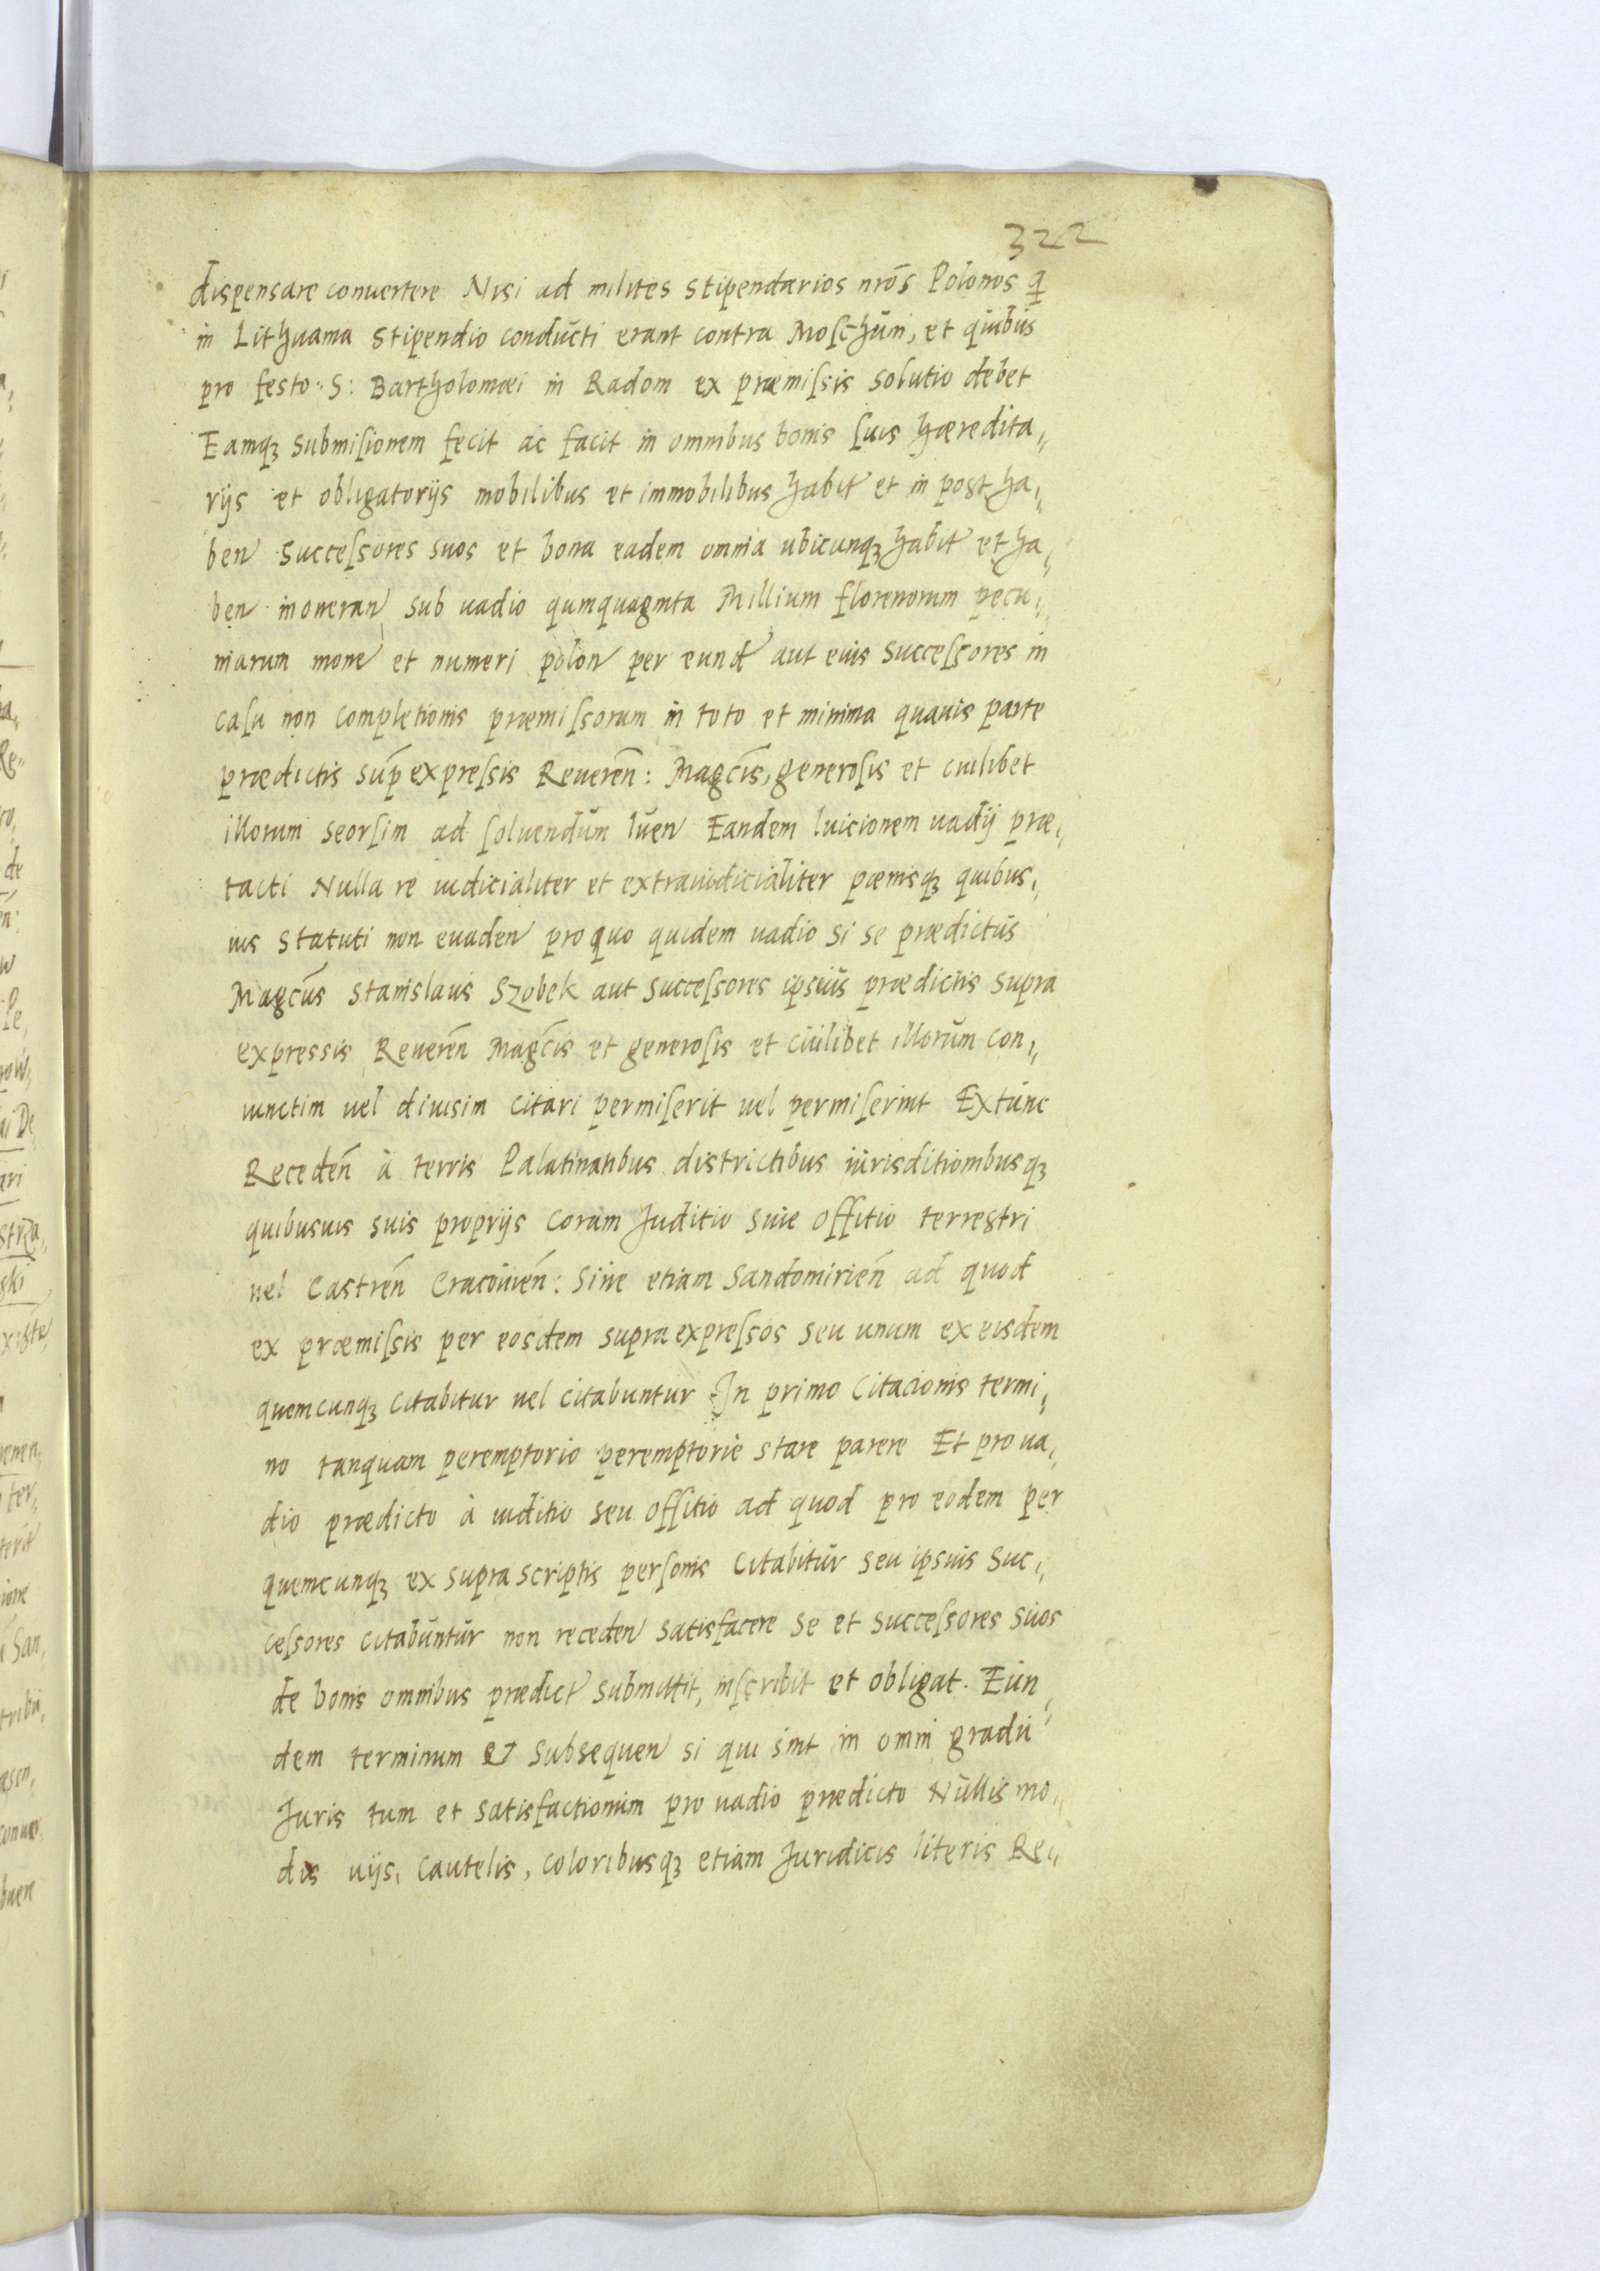 322
dispensare conuertere Nisi ad milites stipendarios nrōs Polonos q
in Lithuania stipendio conducti erant contra Moschum, et quibus
pro festo S: Bartholomæi in Radom ex præmissis solutio debet
Eamqz submisionem fecit ac facit in omnibus bonis suis hæredita„
rijs et obligatorijs mobilibus et immobilibus habit et in post ha„
ben successores suos et bona eadem omnia ubicunqz habit et ha„
ben inoneran sub uadio qumquaginta Millium florenorum pecu„
niarum mone et numeri polon per eund aut eius successores in
casu non completionis præmissorum in toto et minima quauis parte
prædictis sup expressis Reueren: Magcis, generosis et cuilibet
illorum seorsim ad soluendum luen Eandem luicionem uadij præ„
tacti Nulla re iudicialiter et extraiudicialiter pœnisqz quibus„
uis statuti non euaden pro quo quidem uadio si se prædictus
Magcus Stanislaus Szobek aut successores ipsius prædictis supra
expressis Reueren Magcis et generosis et cuilibet illorum con„
iunctim uel diuisim citari permiserit uel permiserint Extunc
Receden à terris Palatinatibus districtibus iurisditionibusqz
quibusuis suis proprijs coram Juditio siue offitio terrestri
uel Castren Cracouien: siue etiam Sandomirien ad quod
ex præmissis per eosdem supra expressos seu unum ex eisdem
quemcunqz citabitur uel citabuntur In primo Citacionis termi„
no tanquam peremptorio peremptorie stare parere Et pro ua„
dio prædicto à iuditio seu offitio ad quod pro eodem per
quemcunqz ex supra scriptis personis Citabitur seu ipsius suc„
cessores citabuntur non receden satisfacere se et successores suos
de bonis omnibus prædict submittit, inscribit et obligat. Eun„
dem terminum et subsequen si qui sint in omni gradu
Juris tum et satisfactionim pro uadio prædicto Nullis mo„
dis uijs, cautelis, coloribusqz etiam Juridicis literis Re„